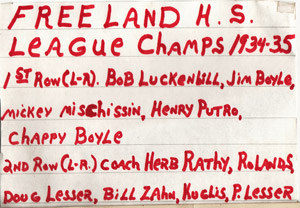 FREELAND H.S.
LEAGUE CHAMPS 1934-35
1ST ROW (L-R). BOB LUCKENBILL, JIM BOYLE,
MICKEY MISCHISSIN, HENRY PUTRO,
CHAPPY BOYLE
2ND ROW (L-R.) COACH HERB RATHY, ROLANDS,
DOUG LESSER, BILL ZAHN, KUGLIS, P. LESSER